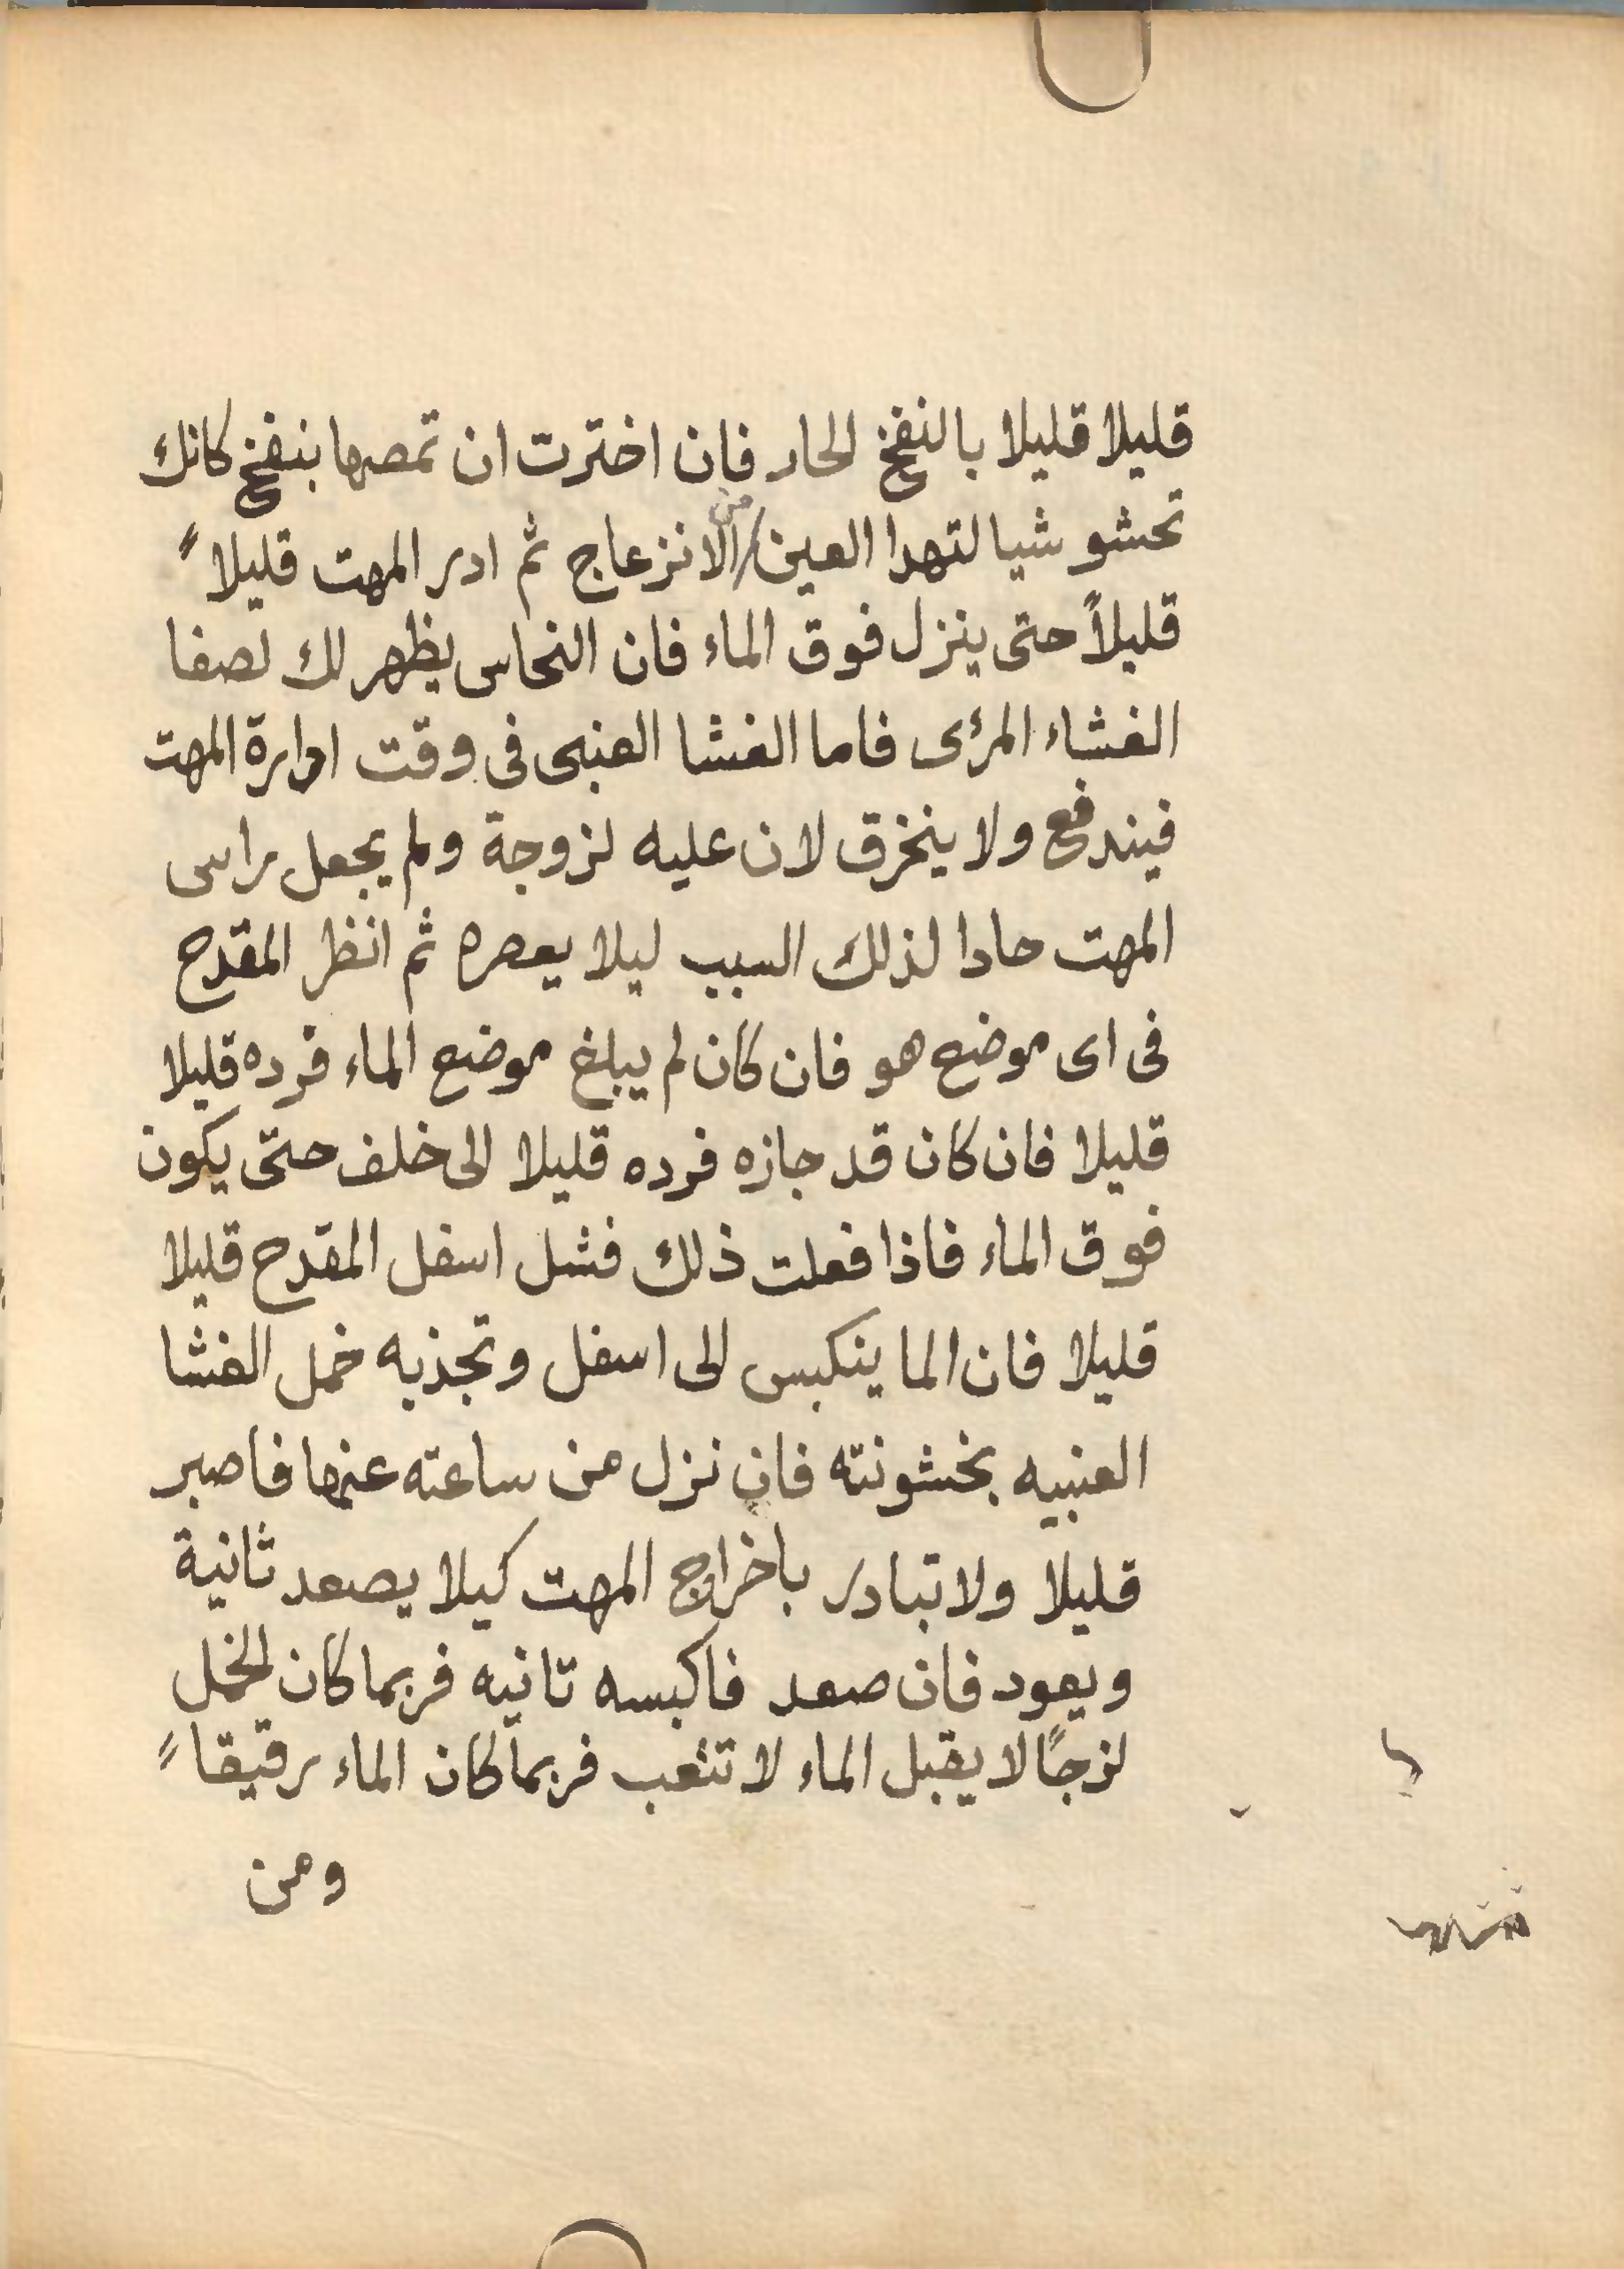 قليلا قليلا بالنفخ الحار فان اخترت ان تمصها بنفخ كانك
تحشو شيا لتهدا العين من الانزعاج ثم ادر المهت قليلاً
قليلاً حتى ينزل فوق الماء فان النحاس يظهر لك لصفا
الغشاء المرئى فاما الغشا العنبى فى وقت ادارة المهت
فيندفع ولا ينخرق لان عليه لزوجة ولم يجعل راس
المهت حادا لذلك السبب ليلا يعصره ثم انظر المقدح
فى اى موضع هو فان كان لم يبلغ موضع الماء فرده قليلا
قليلا فان كان قد جازه فرده قليلا الى خلف حتى يكون
فوق الماء فاذا فعلت ذلك فشل اسفل المقدح قليلا
قليلا فان الما ينكبس الى اسفل وتجذبه خمل الغشا
العنبيه بخشونته فان نزل من ساعته عنها فاصبر
قليلا ولا تبادر باخراج المهت كيلا يصعد ثانية
ويعود فان صعد فاكبسه تانيه فربما كان الخمل
لزجًا لا يقبل الماء لا تتعب فربما كان الماء رقيقاً
ومن